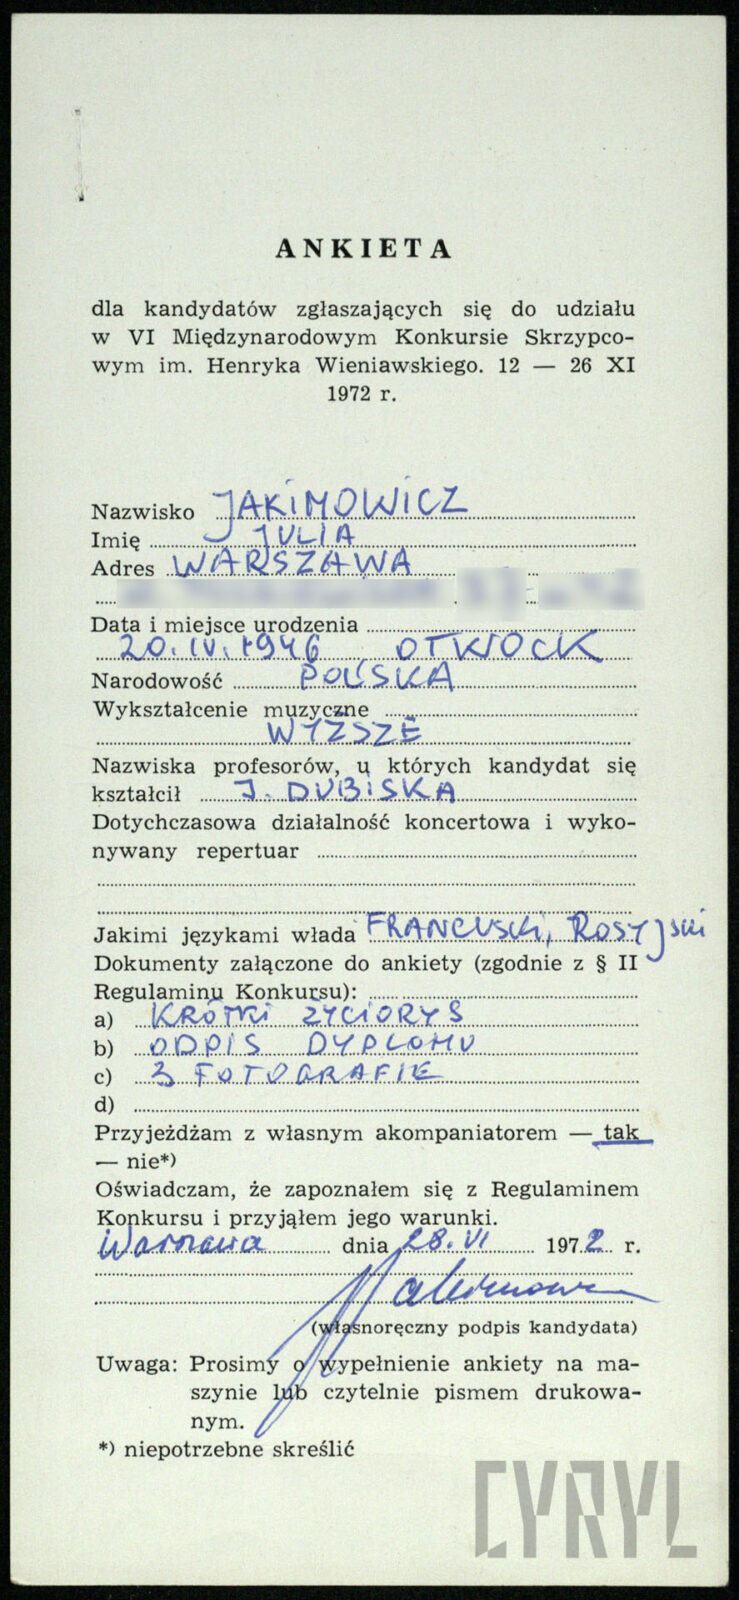 ANKIETA
dla kandydatów zgłaszających się do udziału
w VI Międzynarodowym Konkursie Skrzypco-
wym im. Henryka Wieniawskiego. 12 — 26 XI
1972 r.
Nazwisko JAKIMOWICZ
Imię JULIA
Adres WARSZAWA
Data i miejsce urodzenia
20.IV.1946 OTWOCK
Narodowość POLSKA
Wykształcenie muzyczne
WYŻSZE
Nazwiska profesorów, u których kandydat się
kształcił I. DUBISKA
Dotychczasowa działalność koncertowa i wyko-
nywany repertuar
Jakimi językami włada FRANCUSKI, ROSYJSKI
Dokumenty załączone do ankiety (zgodnie z § II
Regulaminu Konkursu):
a) KRÓTKI ŻYCIORYS
b) ODPIS DYPLOMU
c) 3 FOTOGRAFIE
d)
Przyjeżdżam z własnym akompaniatorem — tak
— nie*)
Oświadczam, że zapoznałem się z Regulaminem
Konkursu i przyjąłem jego warunki.
Warszawa dnia 28.VI 1972 r.
(własnoręczny podpis kandydata)
Uwaga: Prosimy o wypełnienie ankiety na ma-
szynie lub czytelnie pismem drukowa-
nym.
*) niepotrzebne skreślić
CYRYL